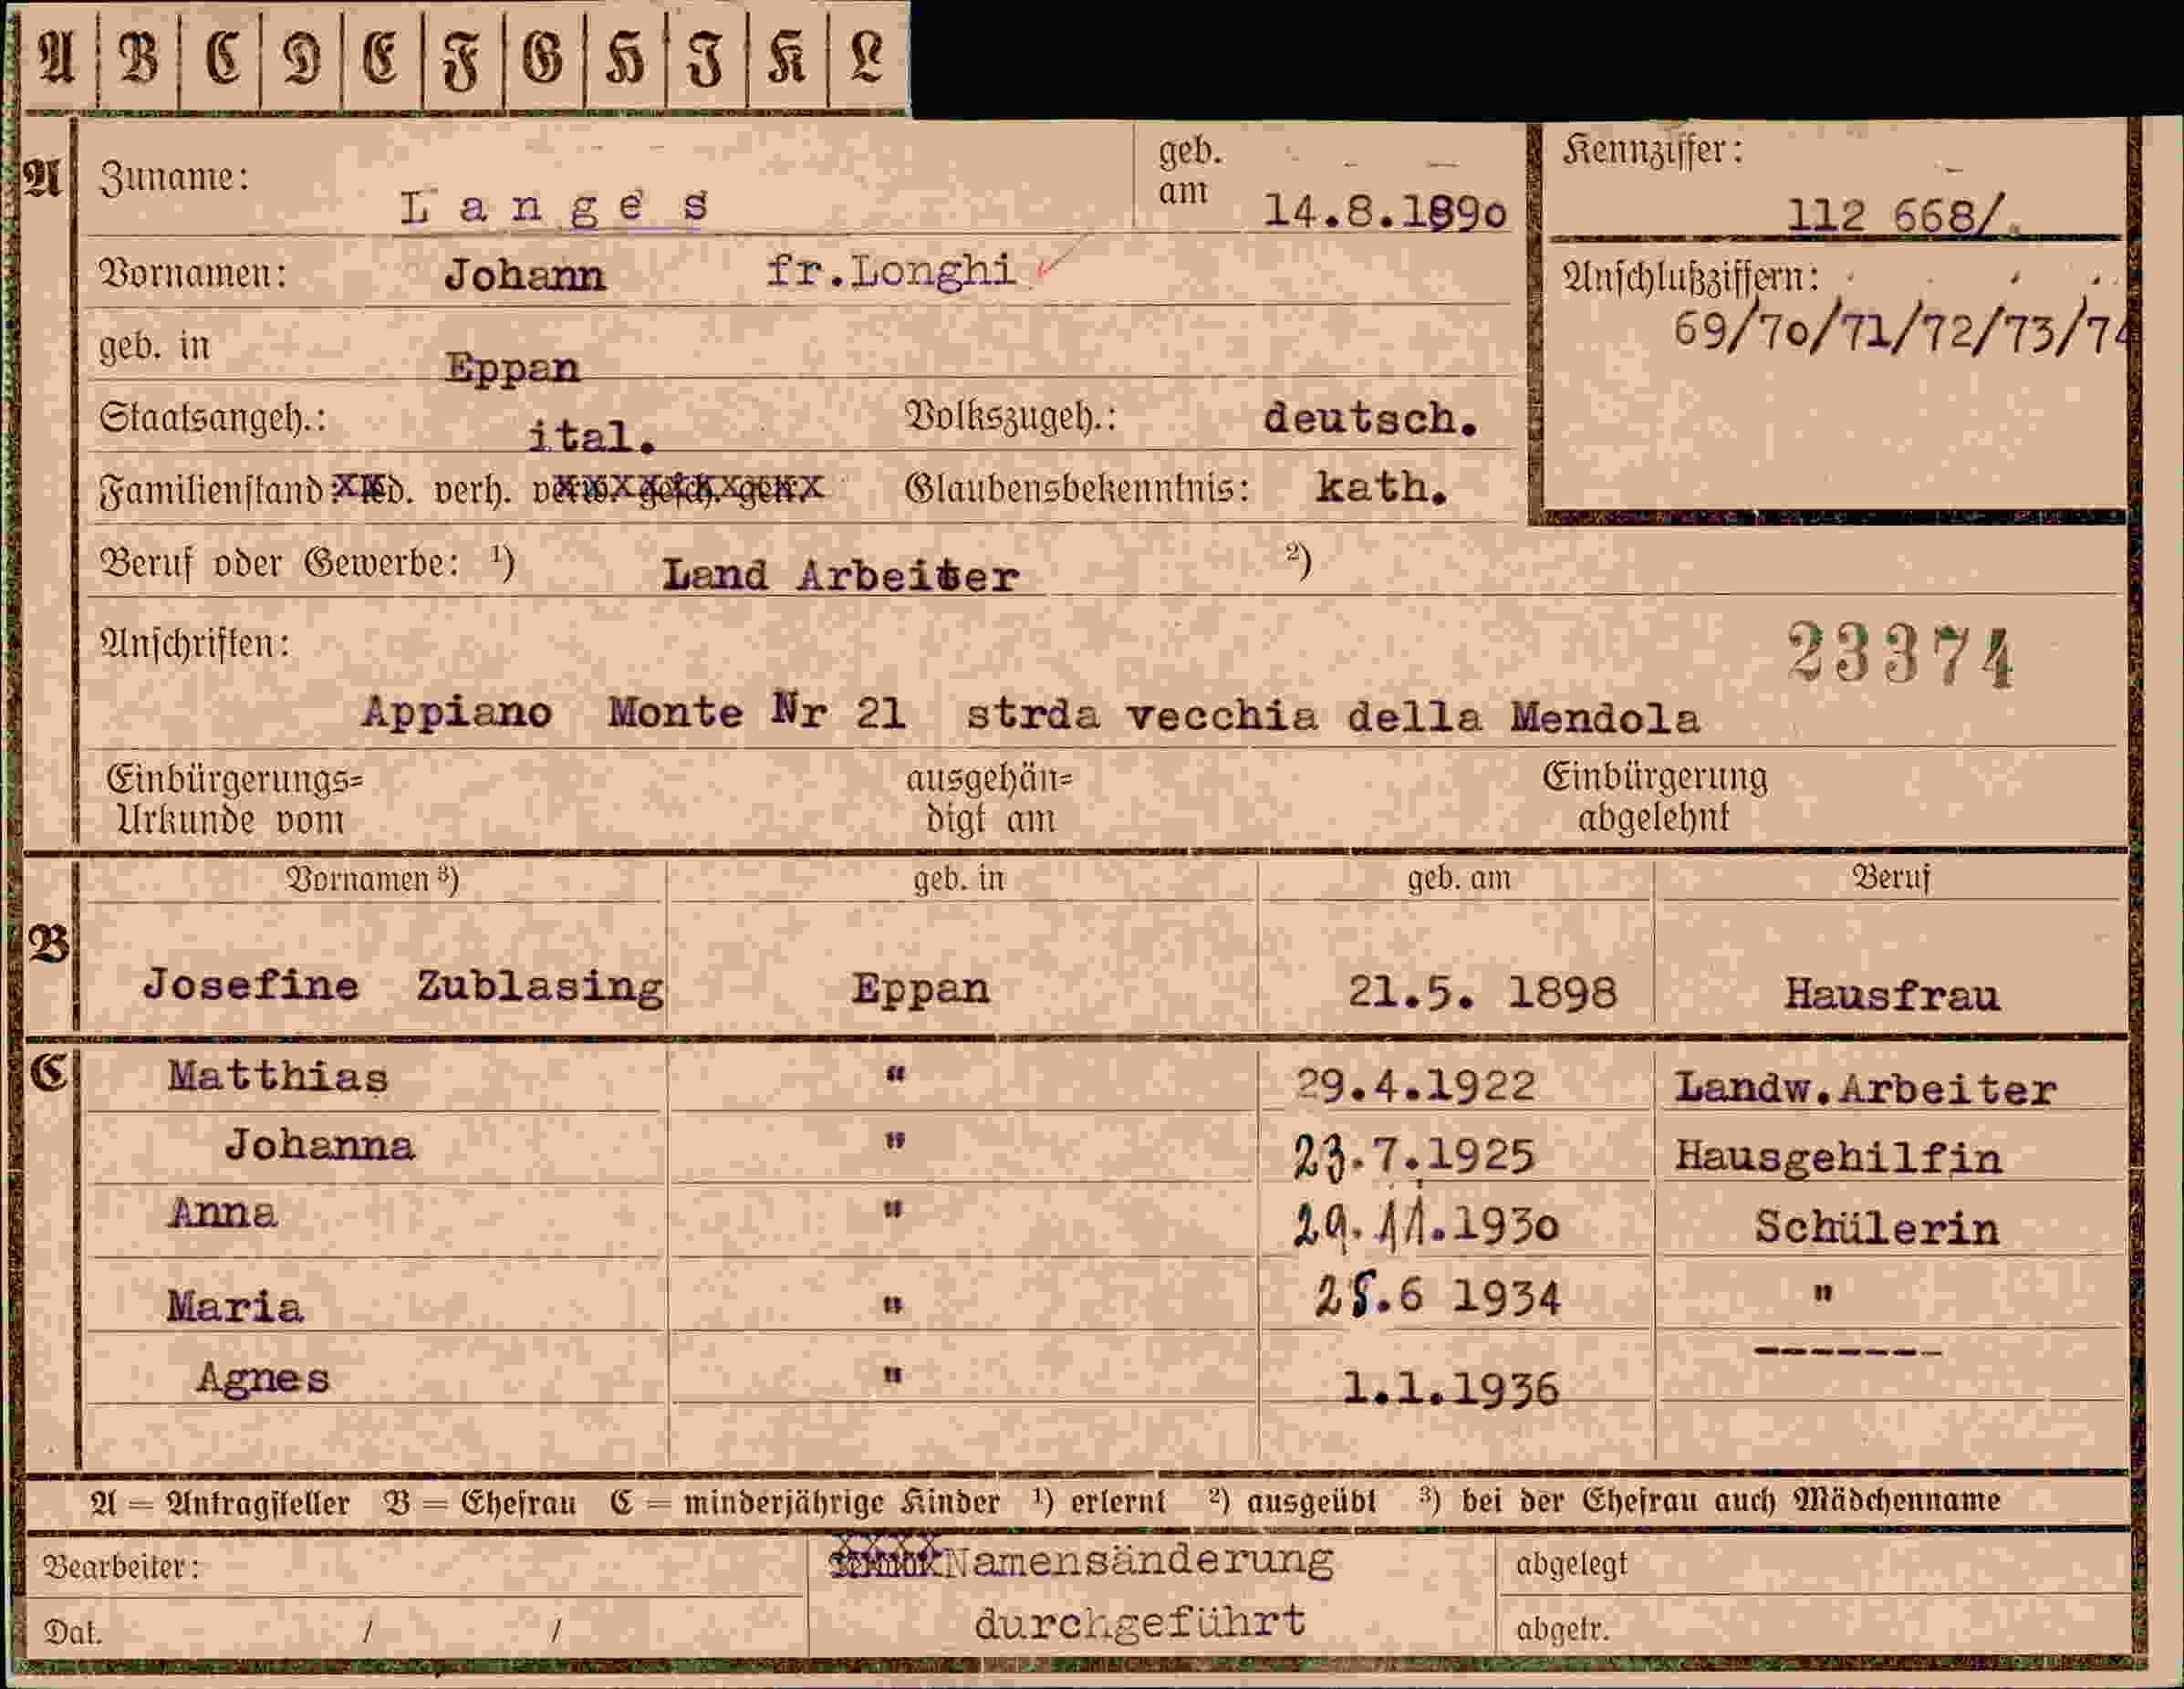 A B C D E F G H I K L
A Zuname: Langes geb. am 14.8.1890 Kennziffer: 112 668/.
Vornamen: Johann fr.Longhi Anschlußziffern:
69/70/71/72/73/74
geb. in Eppan
Staatsangeh.: ital. Volkszugeh.: deutsch.
Familienstand: led. verh. verw. gesch. getr. Glaubensbekenntnis: kath.
Beruf oder Gewerbe: ¹) Land Arbeiter ²)
Anschriften: 23374
Appiano Monte Nr 21 strda vecchia della Mendola
Einbürgerungs= ausgehän= Einbürgerung
Urkunde vom digt am abgelehnt
Vornamen ³) geb. in geb. am Beruf
B Josefine Zublasing Eppan 21.5. 1898 Hausfrau
C Matthias " 29.4.1922 Landw.Arbeiter
Johanna " 23.7.1925 Hausgehilfin
Anna " 29.11.1930 Schülerin
Maria " 25.6 1934 "
Agnes " 1.1.1936 -------
A = Antragsteller B = Ehefrau C = minderjährige Kinder ¹) erlernt ²) ausgeübt ³) bei der Ehefrau auch Mädchenname
Bearbeiter: Namensänderung abgelegt
Dat. / / durchgeführt abgetr.